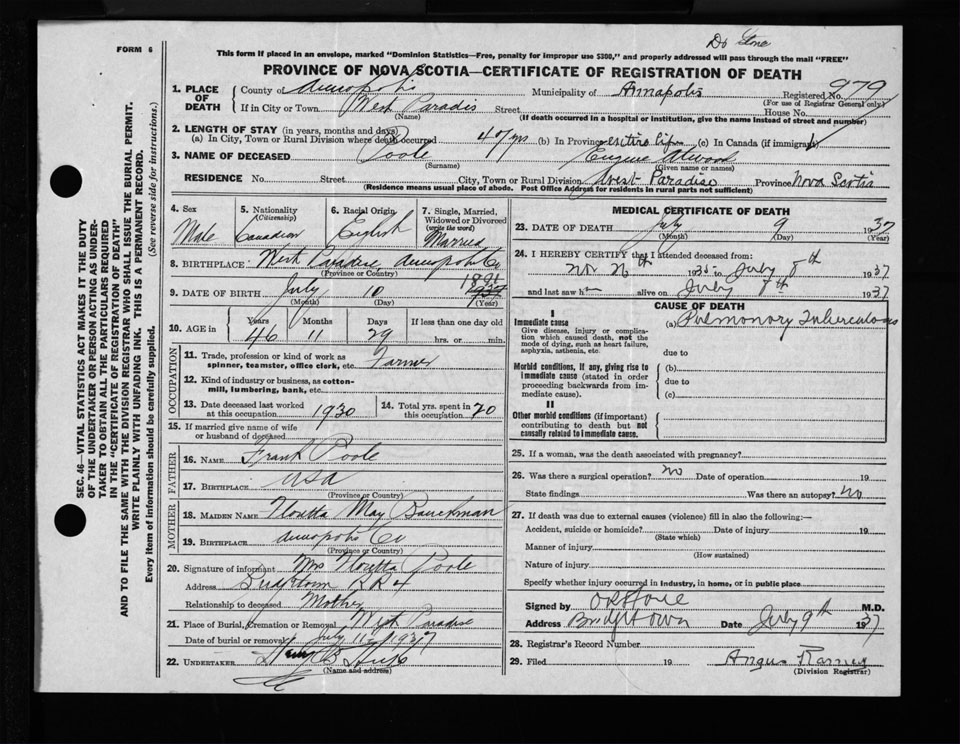 FORM 6
This form if placed in an envelope, marked "Dominion Statistics—Free, penalty for improper use $300," and properly addressed will pass through the mail "FREE"
PROVINCE OF NOVA SCOTIA—CERTIFICATE OF REGISTRATION OF DEATH
1. PLACE OF DEATH County of Annapolis Municipality of Annapolis Registered No. 979
(For use of Registrar General only)
If in City or Town West Paradis Street House No.
(Name) (If death occurred in a hospital or institution, give the name instead of street and number)
2. LENGTH OF STAY (in years, months and days)
(a) In City, Town or Rural Division where death occurred (b) In Province entire life (c) In Canada (if immigrant)
3. NAME OF DECEASED Poole Eugene Atwood
(Surname) (Given name or names)
RESIDENCE No. Street City, Town or Rural Division West Paradise Province Nova Scotia
(Residence means usual place of abode. Post Office Address for residents in rural parts not sufficient)
4. Sex Male
5. Nationality (Citizenship) Canadian
6. Racial Origin English
7. Single, Married, Widowed or Divorced (write the word) Married
8. BIRTHPLACE West Paradise Annapolis Co
(Province or Country)
9. DATE OF BIRTH July 10 1891
(Month) (Day) (Year)
10. AGE in Years 46 Months 11 Days 29 If less than one day old hrs. or min.
OCCUPATION
11. Trade, profession or kind of work as spinner, teamster, office clerk, etc. Farmer
12. Kind of industry or business, as cotton-mill, lumbering, bank, etc.
13. Date deceased last worked at this occupation 1930 14. Total yrs. spent in this occupation 20
15. If married give name of wife or husband of deceased
FATHER
16. NAME Frank Poole
17. BIRTHPLACE USA
(Province or Country)
MOTHER
18. MAIDEN NAME May
19. BIRTHPLACE Annapolis Co
(Province or Country)
20. Signature of informant Mrs Poole
Address RR4
Relationship to deceased Mother
21. Place of Burial, Cremation or Removal West Paradise
Date of burial or removal July 11 1937
22. UNDERTAKER
(Name and address)
MEDICAL CERTIFICATE OF DEATH
23. DATE OF DEATH July 9 1937
(Month) (Day) (Year)
24. I HEREBY CERTIFY that I attended deceased from:
to July 8th 1937
and last saw h alive on July 8th 1937
CAUSE OF DEATH
I
Immediate cause (a) Pulmonary Tuberculosis
Give disease, injury or complication which caused death, not the mode of dying, such as heart failure, asphyxia, asthenia, etc.
due to
Morbid conditions, if any, giving rise to immediate cause (stated in order proceeding backwards from immediate cause).
(b)
due to
(c)
II
Other morbid conditions (if important) contributing to death but not causally related to immediate cause.
25. If a woman, was the death associated with pregnancy?
26. Was there a surgical operation? no Date of operation 19
State findings Was there an autopsy? no
27. If death was due to external causes (violence) fill in also the following:—
Accident, suicide or homicide? Date of injury 19
(State which)
Manner of injury
(How sustained)
Nature of injury
Specify whether injury occurred in industry, in home, or in public place
Signed by M.D.
Address Bridgetown Date July 9th 1937
28. Registrar's Record Number
29. Filed 19 Angus
(Division Registrar)
SEC. 46—VITAL STATISTICS ACT MAKES IT THE DUTY
OF THE UNDERTAKER OR PERSON ACTING AS UNDER-
TAKER TO OBTAIN ALL THE PARTICULARS REQUIRED
IN THE "CERTIFICATE OF REGISTRATION OF DEATH"
AND TO FILE THE SAME WITH THE DIVISION REGISTRAR WHO SHALL ISSUE THE BURIAL PERMIT.
WRITE PLAINLY WITH UNFADING INK. THIS IS A PERMANENT RECORD.
Every item of information should be carefully supplied. (See reverse side for instructions.)